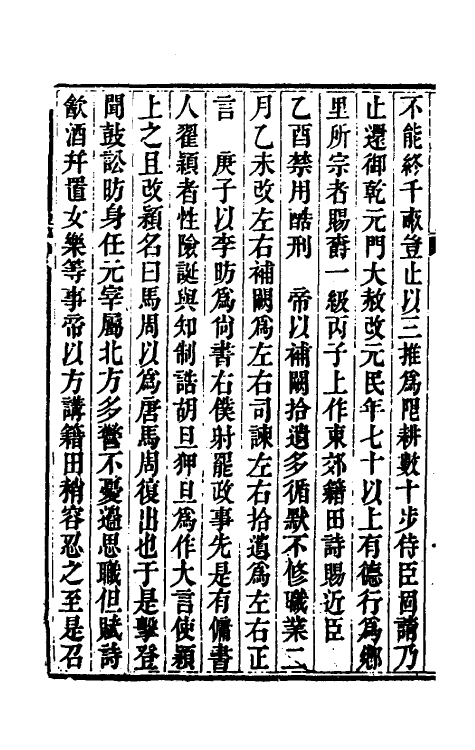 不能終千畝豈止以三推爲限耕數十步侍臣固請乃
止還御乾元門大赦改元民年七十以上有德行爲鄉
里所宗者賜爵一級丙子上作東郊籍田詩賜近臣
乙酉禁用酷刑　帝以補闕拾遺多循默不修職業二
月乙未改左右補闕爲左右司諫左右拾遺爲左右正
言　庚子以李昉爲尙書右僕射罷政事先是有傭書
人翟穎者性險誕與知制誥胡旦狎旦爲作大言使穎
上之且改穎名曰馬周以爲唐馬周復出也于是擊登
聞鼓訟昉身任元宰屬北方多警不憂邊思職但賦詩
飮酒幷置女樂等事帝以方講籍田稍容忍之至是召